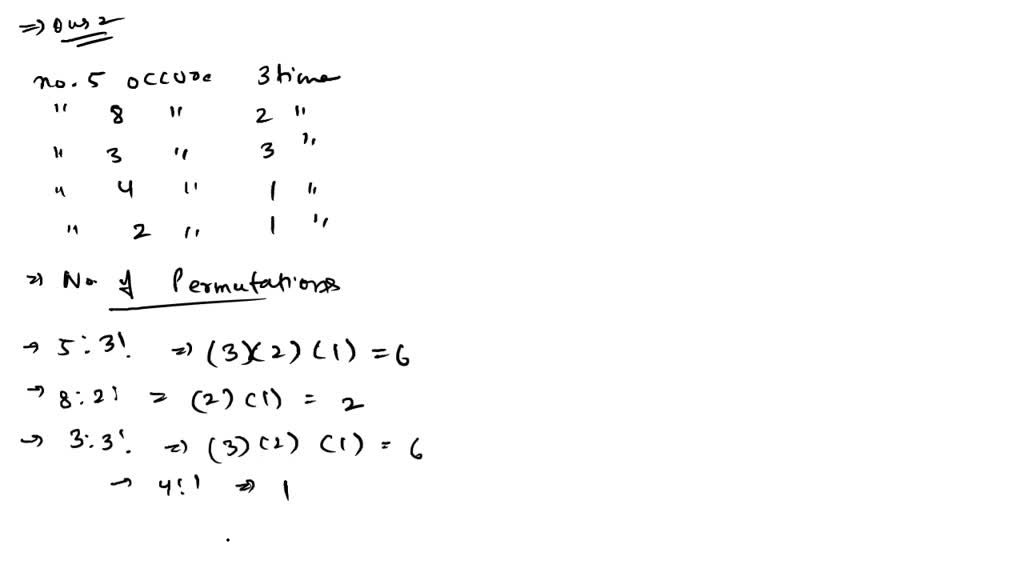 ⇒ Ours
no. 5 occure 3 time
" 8 " 2 "
" 3 " 3 "
" 4 " 1 "
" 2 " 1 "
⇒ No of Permutations
→ 5: 3! ⇒ (3)(2)(1) = 6
→ 8: 2! = (2)(1) = 2
→ 3: 3! ⇒ (3)(2)(1) = 6
→ 4: 1 ⇒ 1